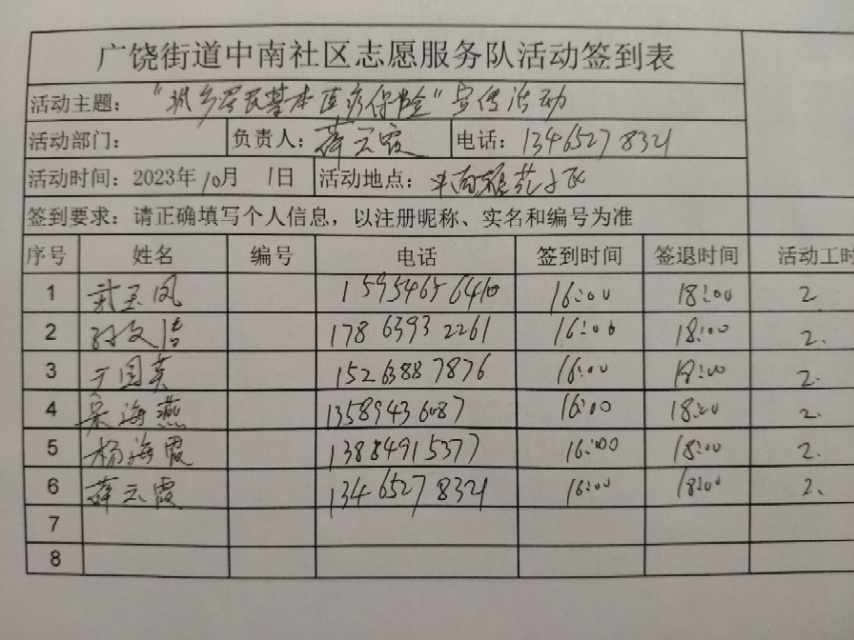 广饶街道中南社区志愿服务队活动签到表
活动主题：“城乡居民基本医疗保险”宣传活动
活动部门： 负责人：薛云霞 电话：13465278321
活动时间：2023年10月 1日 活动地点：中南雅苑小区
签到要求：请正确填写个人信息，以注册昵称、实名和编号为准
序号 姓名 编号 电话 签到时间 签退时间 活动工时
1 武玉凤 15954656410 16:00 18:00 2
2 孙文洁 17863932261 16:00 18:00 2.
3 于国英 15263887876 16:00 18:00 2.
4 吴海燕 13589436087 16:00 18:00 2.
5 杨海霞 13884915377 16:00 18:00 2.
6 薛云霞 13465278321 16:00 18:00 2.
7
8